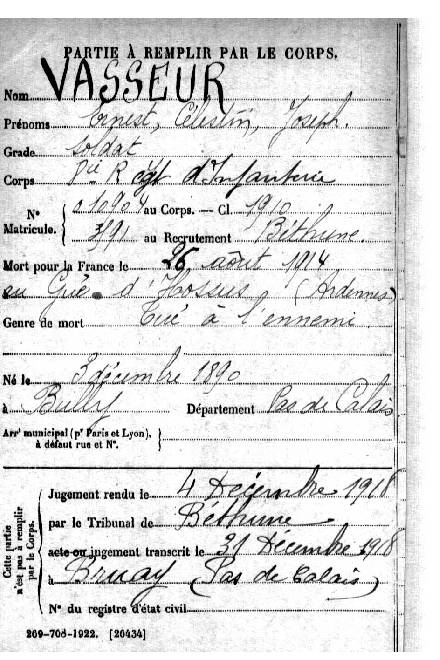 PARTIE À REMPLIR PAR LE CORPS.
Nom VASSEUR
Prénoms Ernest, Célestin, Joseph.
Grade Soldat
Corps Régt d'Infanterie
N° Matricule. 010904 au Corps. — Cl. 1910
3891 au Recrutement Béthune.
Mort pour la France le 26 août 1914
au Gué d'Hossus (Ardennes)
Genre de mort Tué à l'ennemi
Né le 3 décembre 1890
à Bully Département Pas de Calais
Arrt municipal (pr Paris et Lyon), à défaut rue et N°.
Cette partie n'est pas à remplir par le Corps.
Jugement rendu le 4 Décembre 1918
par le Tribunal de Béthune
acte ou jugement transcrit le 31 Décembre 1918
à Bruay (Pas de Calais)
N° du registre d'état civil
269-708-1922. [26434]